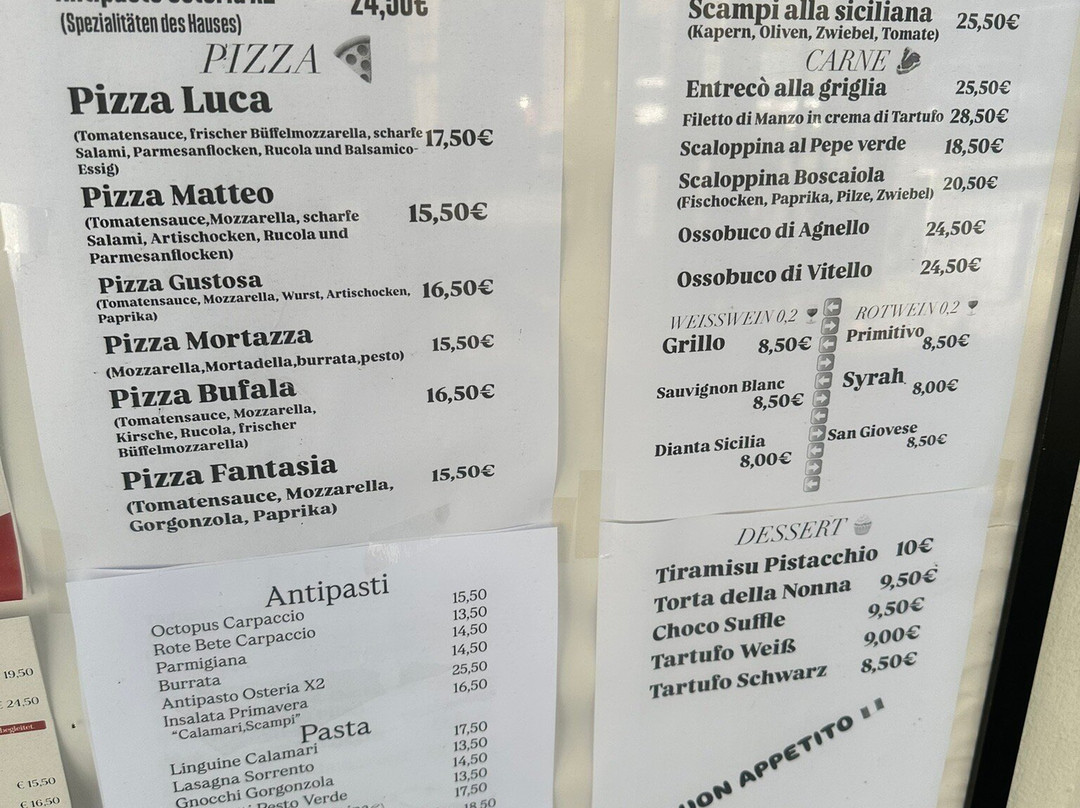 24,50€
(Spezialitäten des Hauses)
PIZZA
Pizza Luca
(Tomatensauce, frischer Büffelmozzarella, scharfe 17,50€
Salami, Parmesanflocken, Rucola und Balsamico-
Essig)
Pizza Matteo
(Tomatensauce,Mozzarella, scharfe 15,50€
Salami, Artischocken, Rucola und
Parmesanflocken)
Pizza Gustosa
(Tomatensauce, Mozzarella, Wurst, Artischocken, 16,50€
Paprika)
Pizza Mortazza 15,50€
(Mozzarella,Mortadella,burrata,pesto)
Pizza Bufala 16,50€
(Tomatensauce, Mozzarella,
Kirsche, Rucola, frischer
Büffelmozzarella)
Pizza Fantasia 15,50€
(Tomatensauce, Mozzarella,
Gorgonzola, Paprika)
Antipasti
Octopus Carpaccio 15,50
Rote Bete Carpaccio 13,50
Parmigiana 14,50
Burrata 14,50
Antipasto Osteria X2 25,50
Insalata Primavera 16,50
"Calamari,Scampi"
Pasta
Linguine Calamari 17,50
Lasagna Sorrento 13,50
Gnocchi Gorgonzola 14,50
Pesto Verde 13,50
17,50
18,50
Scampi alla siciliana 25,50€
(Kapern, Oliven, Zwiebel, Tomate)
CARNE
Entrecò alla griglia 25,50€
Filetto di Manzo in crema di Tartufo 28,50€
Scaloppina al Pepe verde 18,50€
Scaloppina Boscaiola 20,50€
(Fischocken, Paprika, Pilze, Zwiebel)
Ossobuco di Agnello 24,50€
Ossobuco di Vitello 24,50€
WEISSWEIN 0,2
Grillo 8,50€
Sauvignon Blanc
8,50€
Dianta Sicilia
8,00€
ROTWEIN 0,2
Primitivo
8,50€
Syrah 8,00€
San Giovese
8,50€
DESSERT
Tiramisu Pistacchio 10€
Torta della Nonna 9,50€
Choco Suffle 9,50€
Tartufo Weiß 9,00€
Tartufo Schwarz 8,50€
APPETITO !!
19,50
€ 24,50
begleitet
€ 15,50
€ 16,50